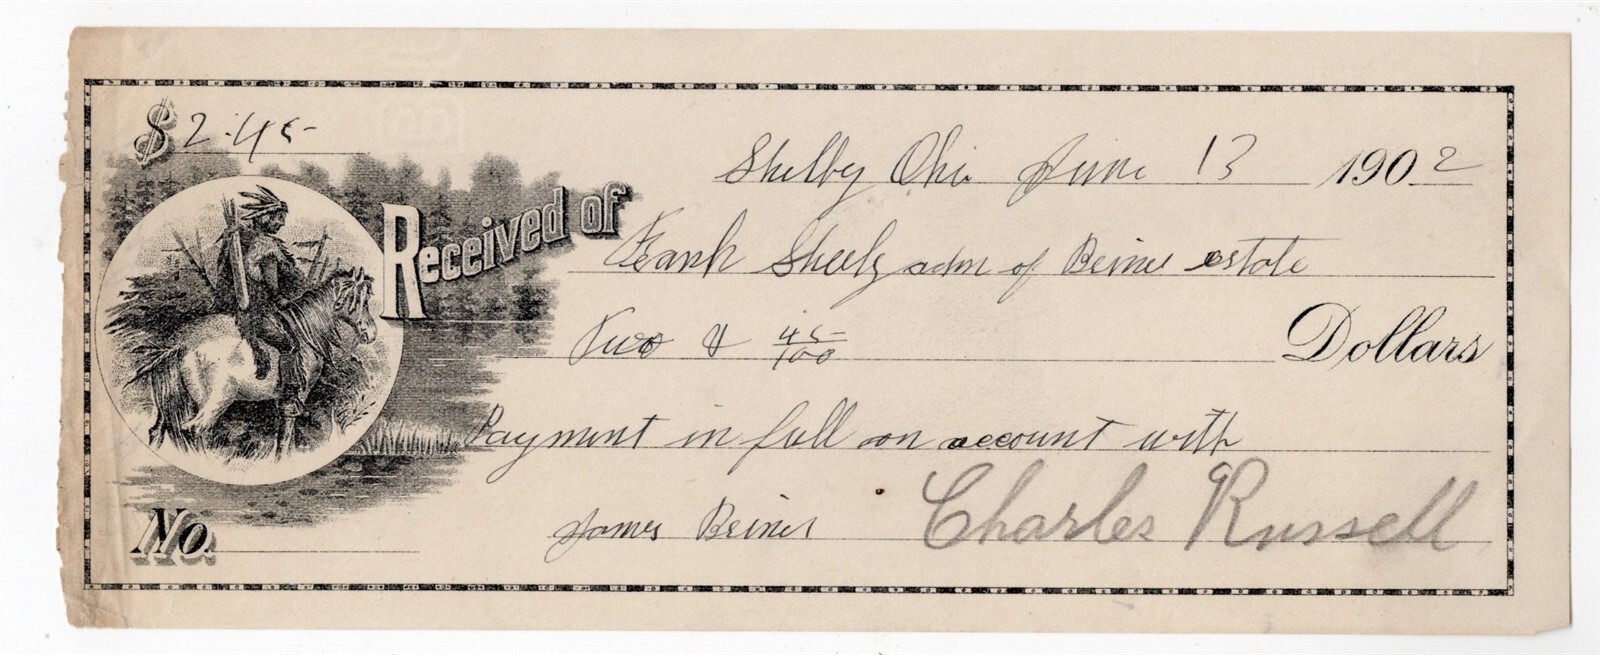 $2.45
Shelby Ohio June 13 1902
Received of Frank Sheely adm of Beines estate
Two & 45/100 Dollars
Payment in full on account with
No. James Beines Charles Russell